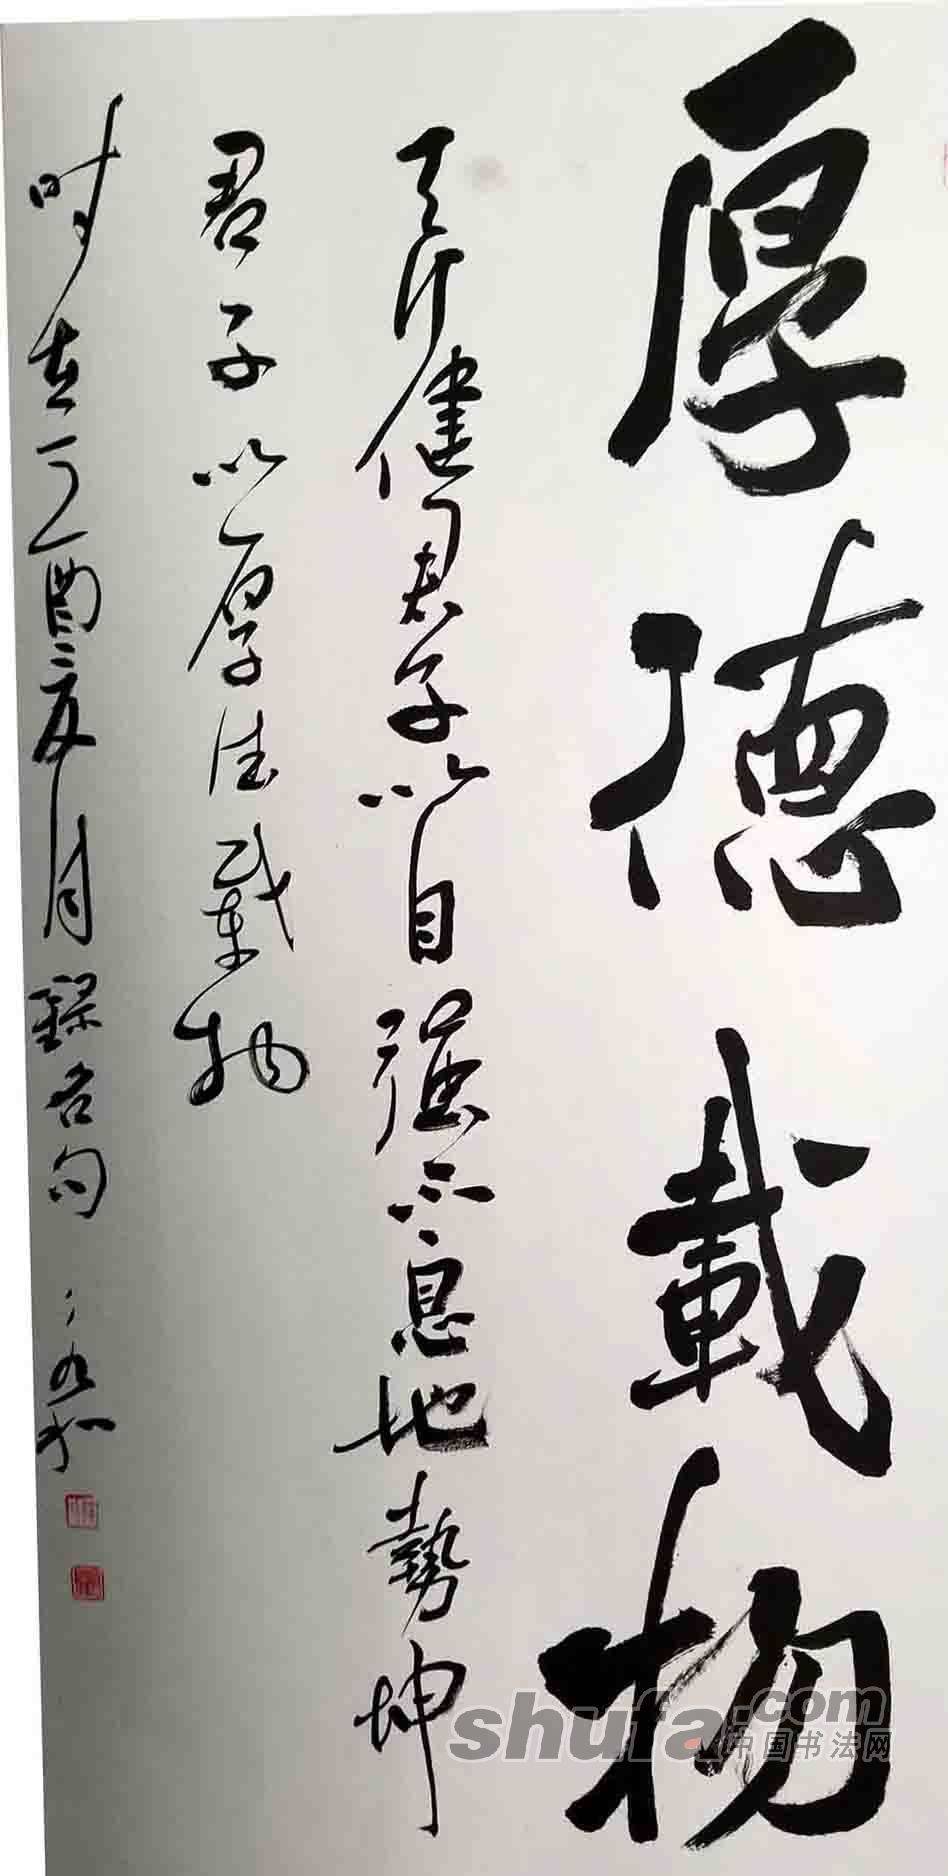 厚德载物
天行健君子以自强不息地势坤
君子以厚德载物
时在丁酉二夏月录名句
shufa.com
中国书法网